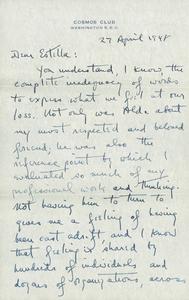 COSMOS CLUB
WASHINGTON 5, D.C.
27 April 1948
Dear Estella:
You understand, I know the
complete inadequacy of words
to express what we feel at our
loss. Not only was Aldo about
my most respected and beloved
friend; he was also the
reference point by which I
evaluated so much of my
professional work and thinking.
Not having him to turn to
gives me a feeling of having
been cast adrift and I know
that feeling is shared by
hundreds of individuals and
dozens of organizations, across